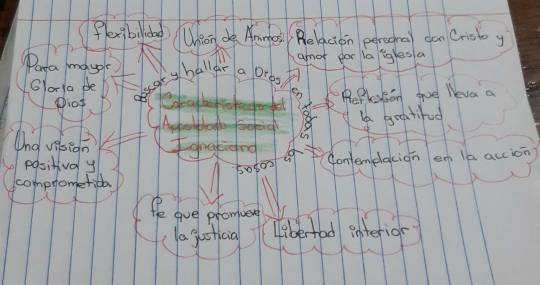 flexibilidad
Unión de Animos
Relación personal con Cristo y
amor por la iglesia
Para mayor
Gloria de
Dios
Buscar y hallar a Dios en todas las cosas
Características del
Apostolado Social
Ignaciano
Reflexión que lleva a
la gratitud
Una visión
positiva y
comprometida
Contemplación en la acción
fe que promueve
la justicia
Libertad interior